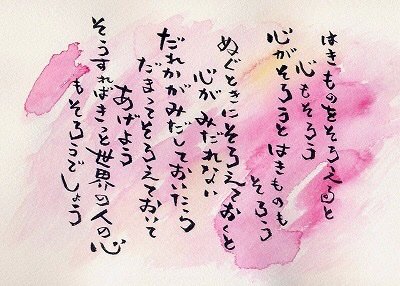 はきものをそろえると
心もそろう
心がそろうとはきものも
そろう
ぬぐときにそろえておくと
心がみだれない
だれかがみだしておいたら
だまってそろえておいて
あげよう
そうすればきっと世界の人の心
もそろうでしょう